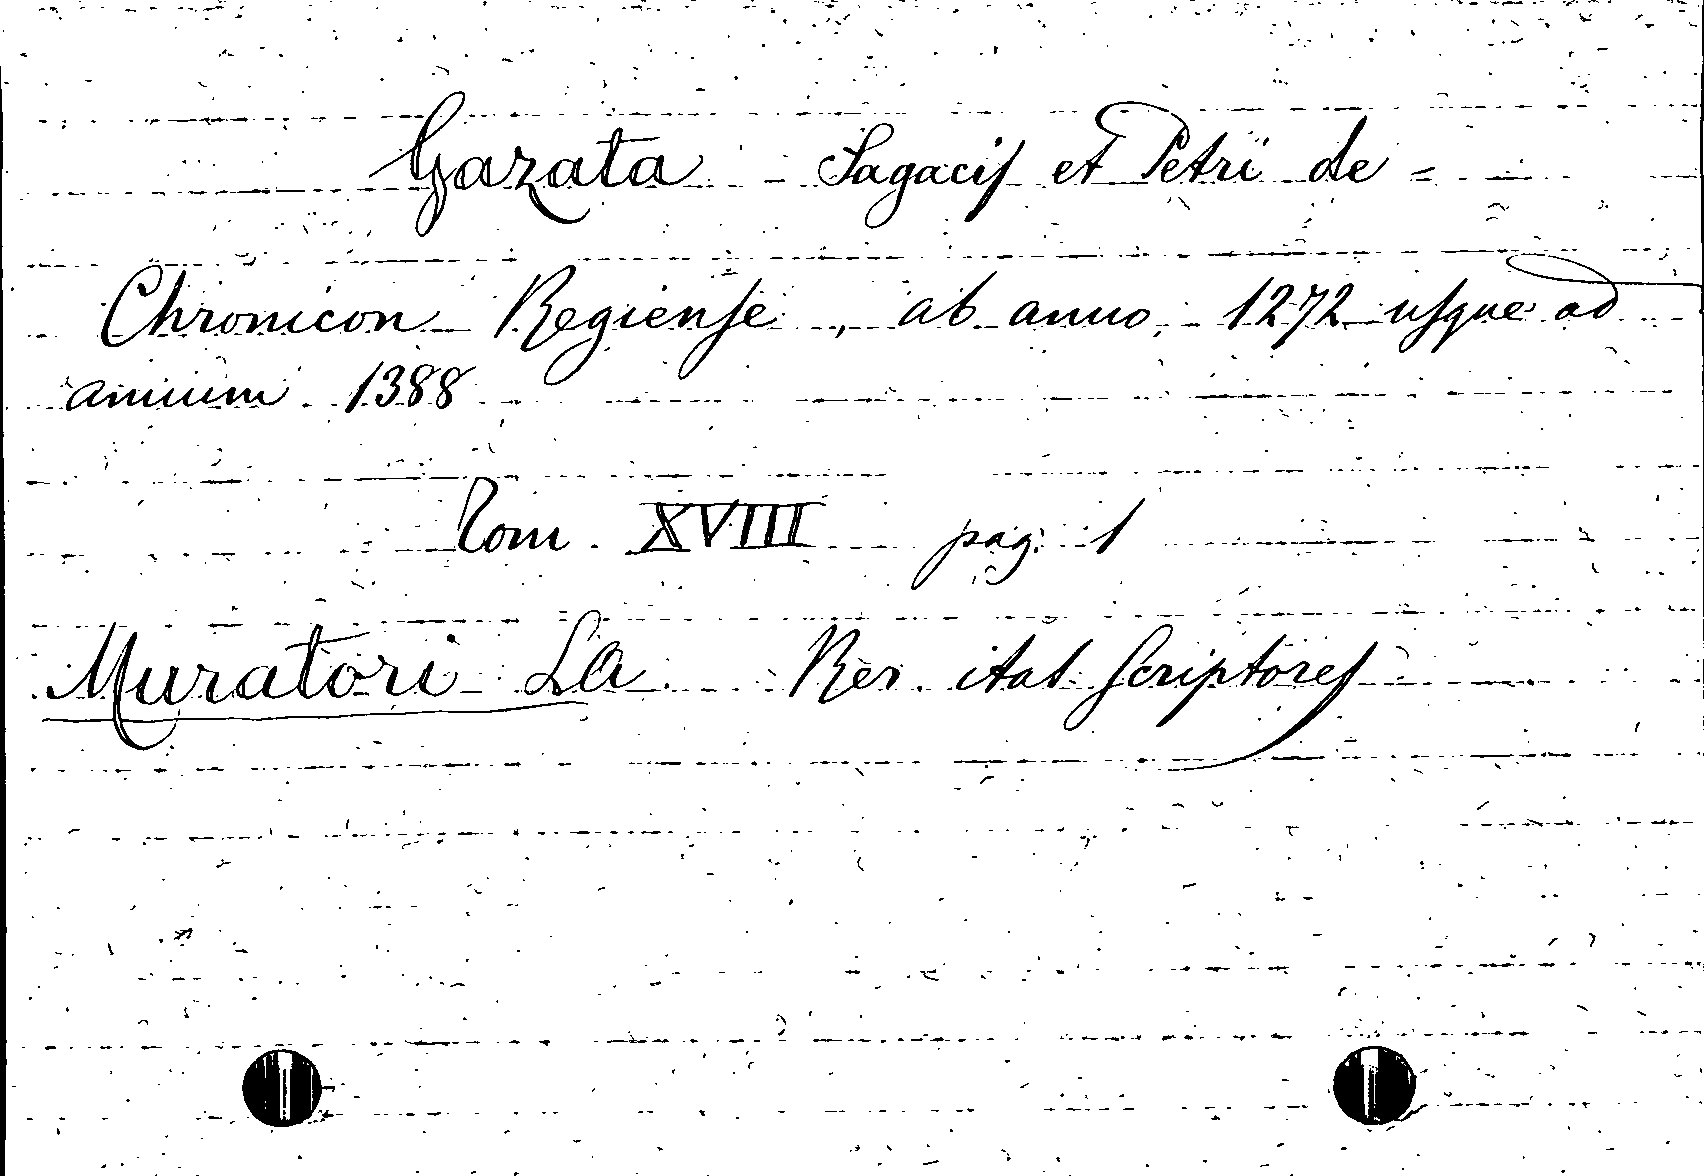 Gazata - Sagacis et Petri de =
Chronicon Regiense, ab anno 1272 usque ad
annum 1388
Tom. XVIII pag: 1
Muratori LA Rer. ital Scriptores